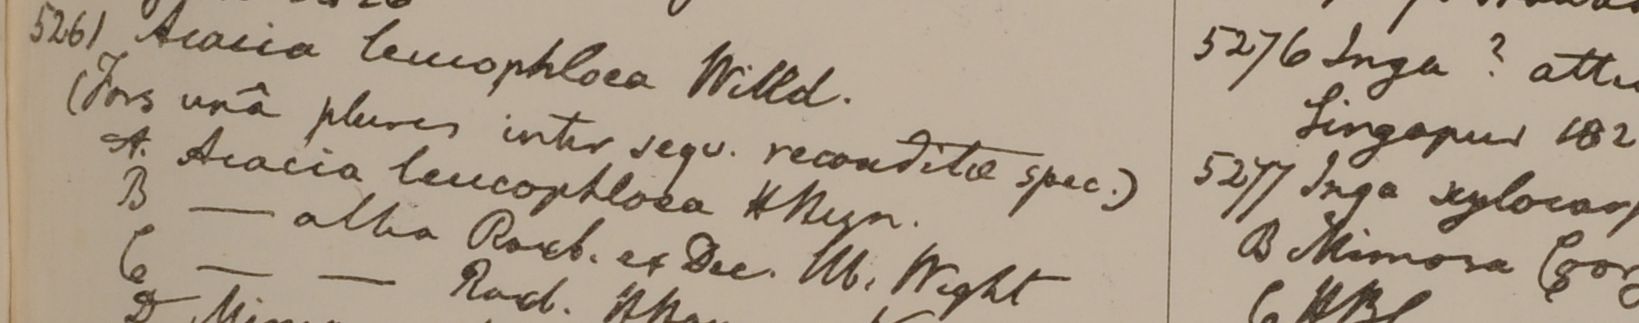 5261 Acacia leucophloea Willd.
(Fors unâ plures inter sequ. reconditæ spec.)
A. Acacia leucophloea HHeyn.
B — alba Roxb. ex Dec. Ub. Wight
C — — Roxb.
D
5276 Inga ?
Singapur 182
5277 Inga xylocarp
B Mimosa
C HBC